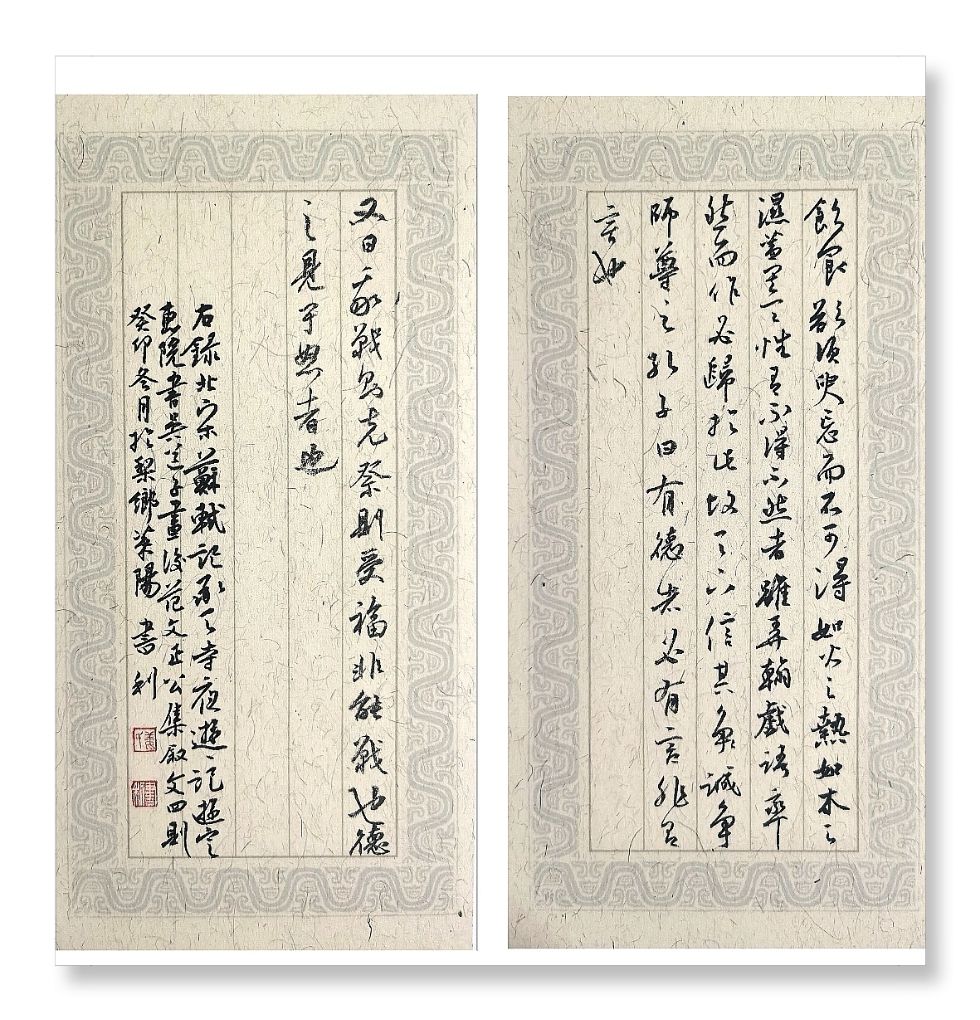 飲食欲須臾忘而不可得如火之熱如水之
濕蓋其天性有不得不然者雖弄翰戲語率
然而作必歸於此故天下信其誠争
師尊之孔子曰有德者必有言非有
言也
又曰我戰則克祭則受福非能戰也德
之見于怒者也
右録北宋蘇軾記承天寺夜遊記遊定
惠院書吳道子畫後范文正公集叙文四則
癸卯冬月於梨鄉萊陽 書利